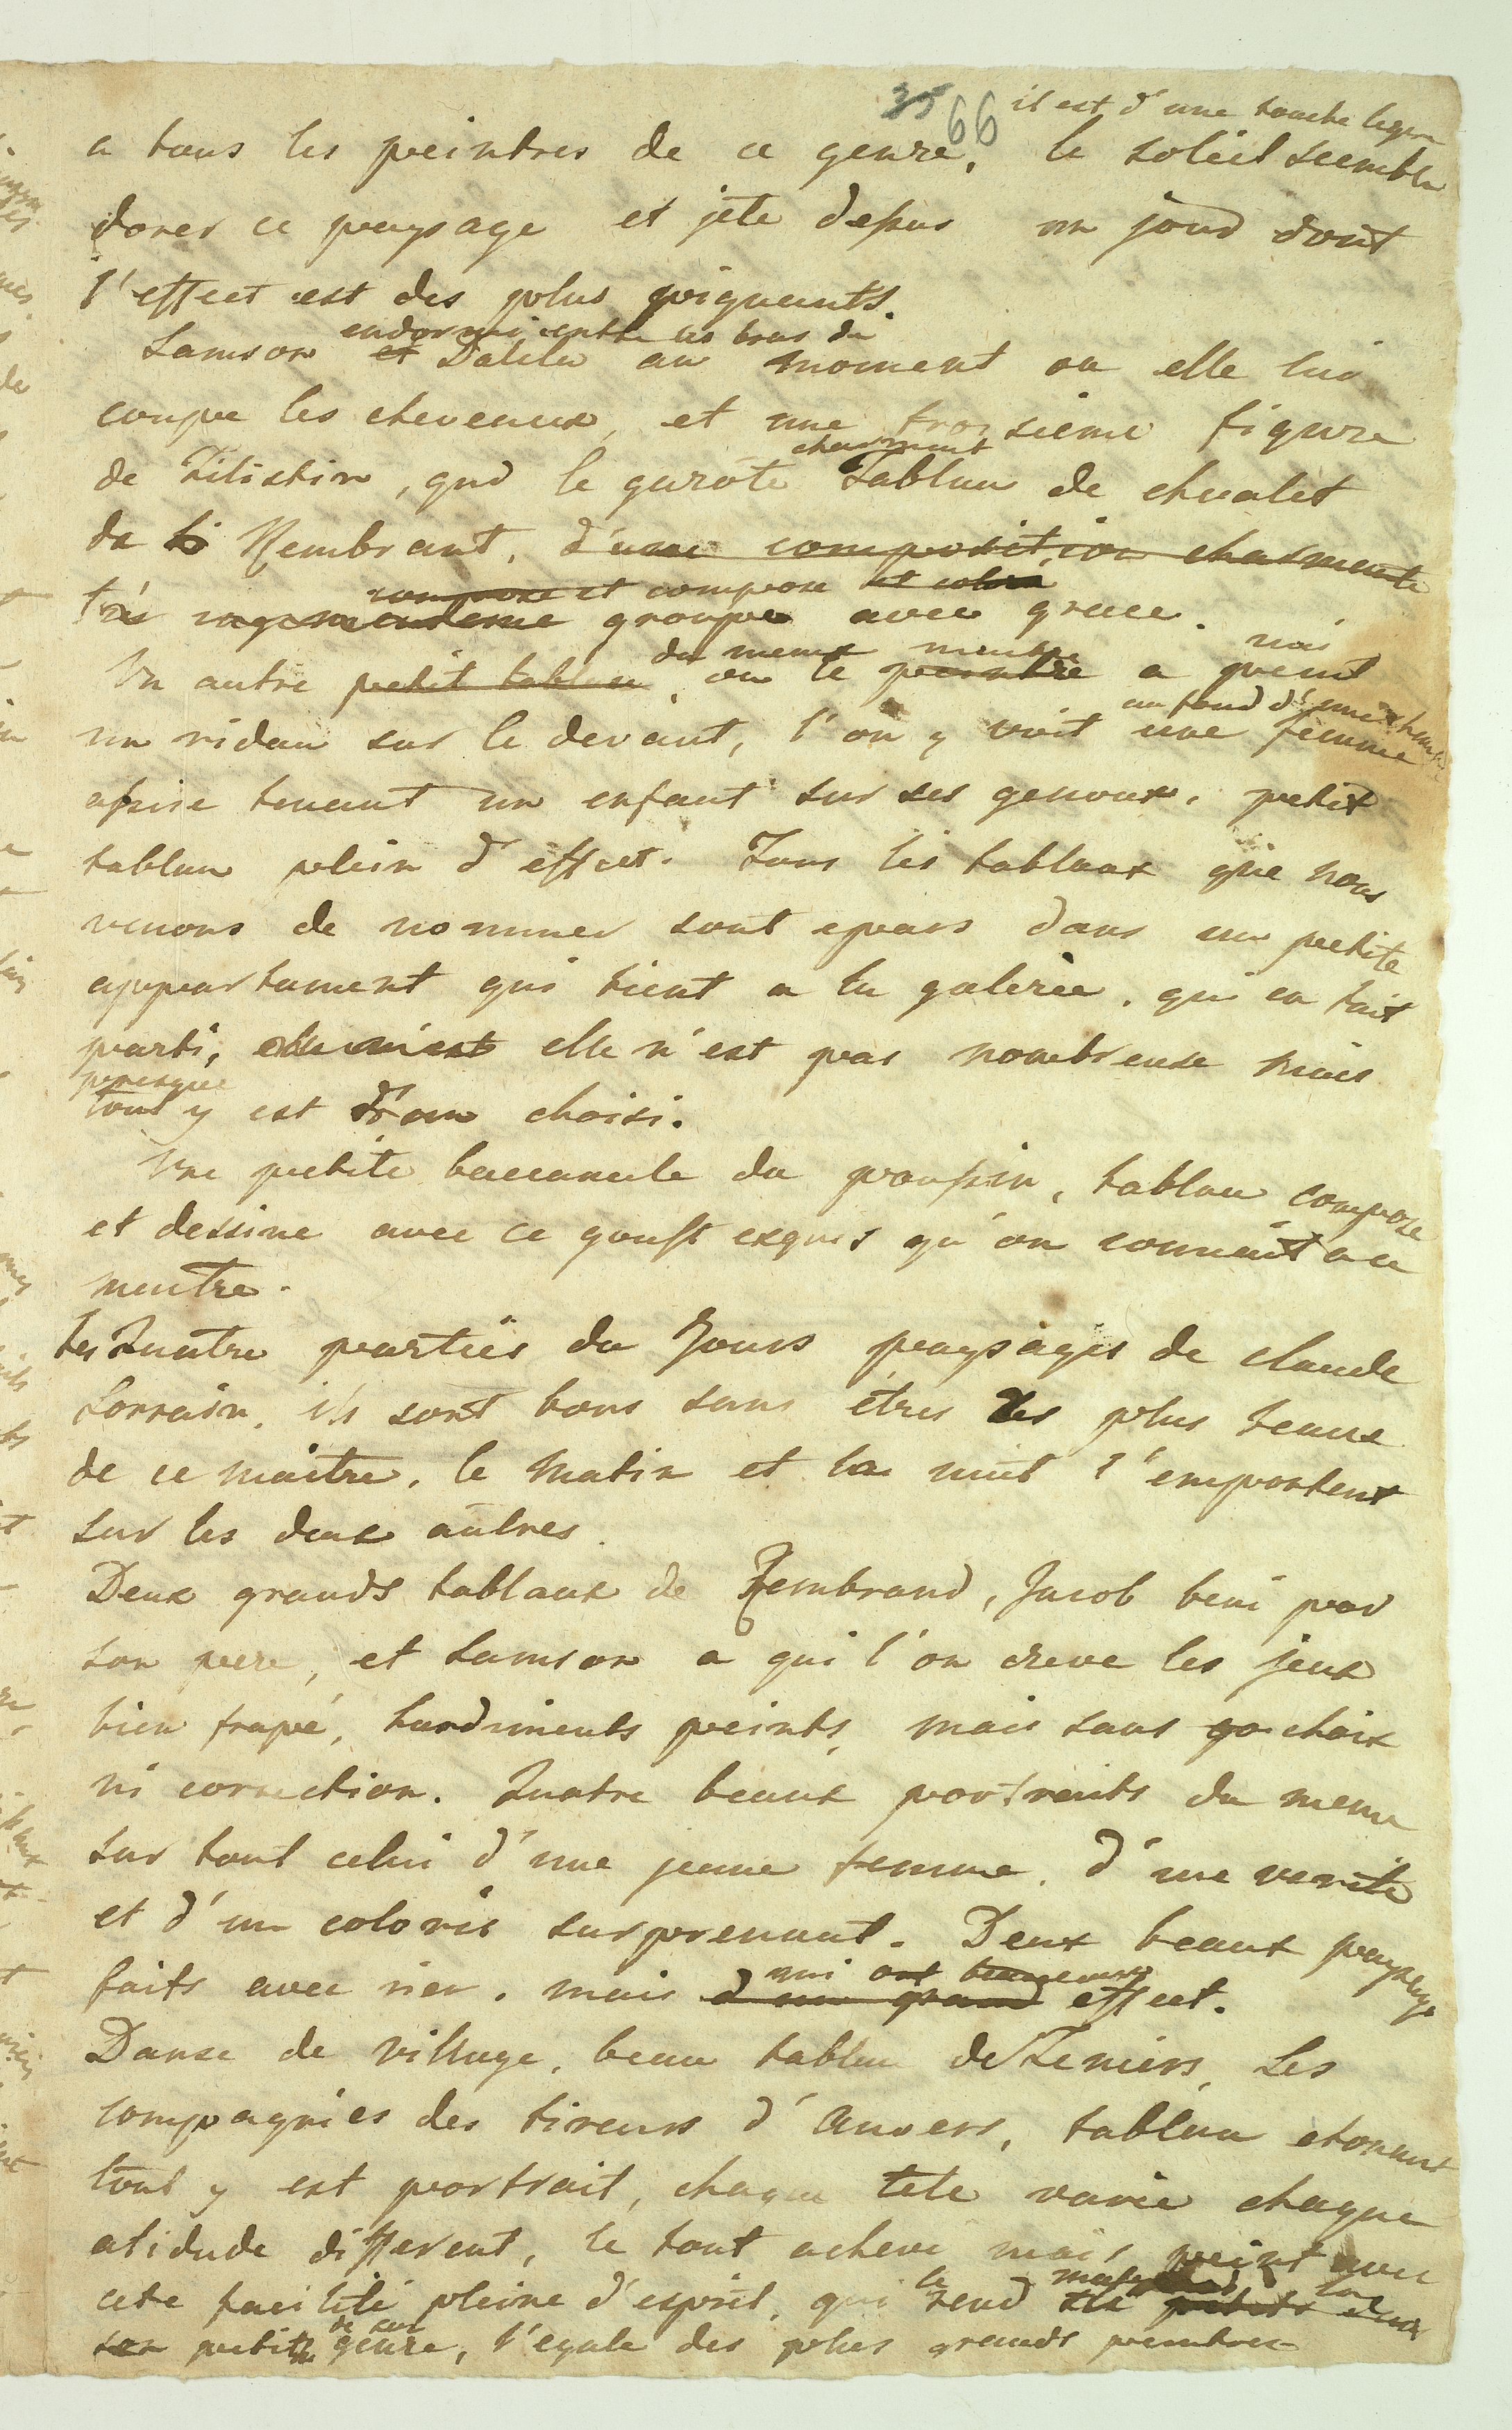 35 66 il est d'une touche legere
a tous les peintres de ce genre, le soleil semble
dorer ce paysage et jete dessus un jour dont
l'effect est des plus piquants.
endormi entre les bras de
Samson et Dalila au moment ou elle lui
coupe les cheveux, et une troisieme figure
charmant
de Filistin, qui le garote Tableau de chevalet
de Rembrant, d'une composition charmante
compose et compose et colorié
très groupe avec grace.
du meme meutre nois
Un autre petit tableau, ou le peintre a peint
au fond d'une
un ridau sur le devant, l'on y voit une femme
assise tenant un enfant sur ses genoux, petit
tablau plein d'effect. Tous les tablaux que nous
venons de nommer sont epars dans un petite
appartament qui tient a la galerie, qui en fait
parti, elle n'est elle n'est pas nombreuse mais
presque
tout y est d'un choisi.
Une petite baccanale du poussin, tablau compose
et dessine avec ce goust exquis qu'on connait a ce
meutre.
les Quatre parties du Jours paysages de claude
Lorrain, ils sont bons sans êtres les plus beaux
de ce maitre, le matin et la nuit l'emportent
sur les deux autres.
Deux grands tablaux de Rembrand, Jacob beni par
son pere, et Samson a qui l'on creve les jeux
bien frapé, hardiments peints, mais sans go choix
ni correction. Quatre beaux portraits du meme
sur tout celui d'une jeune femme, d'une verité
et d'un coloris surprenant. Deux beaux paysage
qui ont beaucoup
faits avec rien, mais d'un grand effect.
Danse de village, beau tablau de Teniers, Les
compagnies des tireurs d'Anvers, tablau etonant
tout y est portrait, chaque tete varié chaque
atidude different, le tout acheve mais peint avec
le
cete facilité pleine d'esprit, qui rend
de cet
son petit genre, l'egale des plus grands peintres